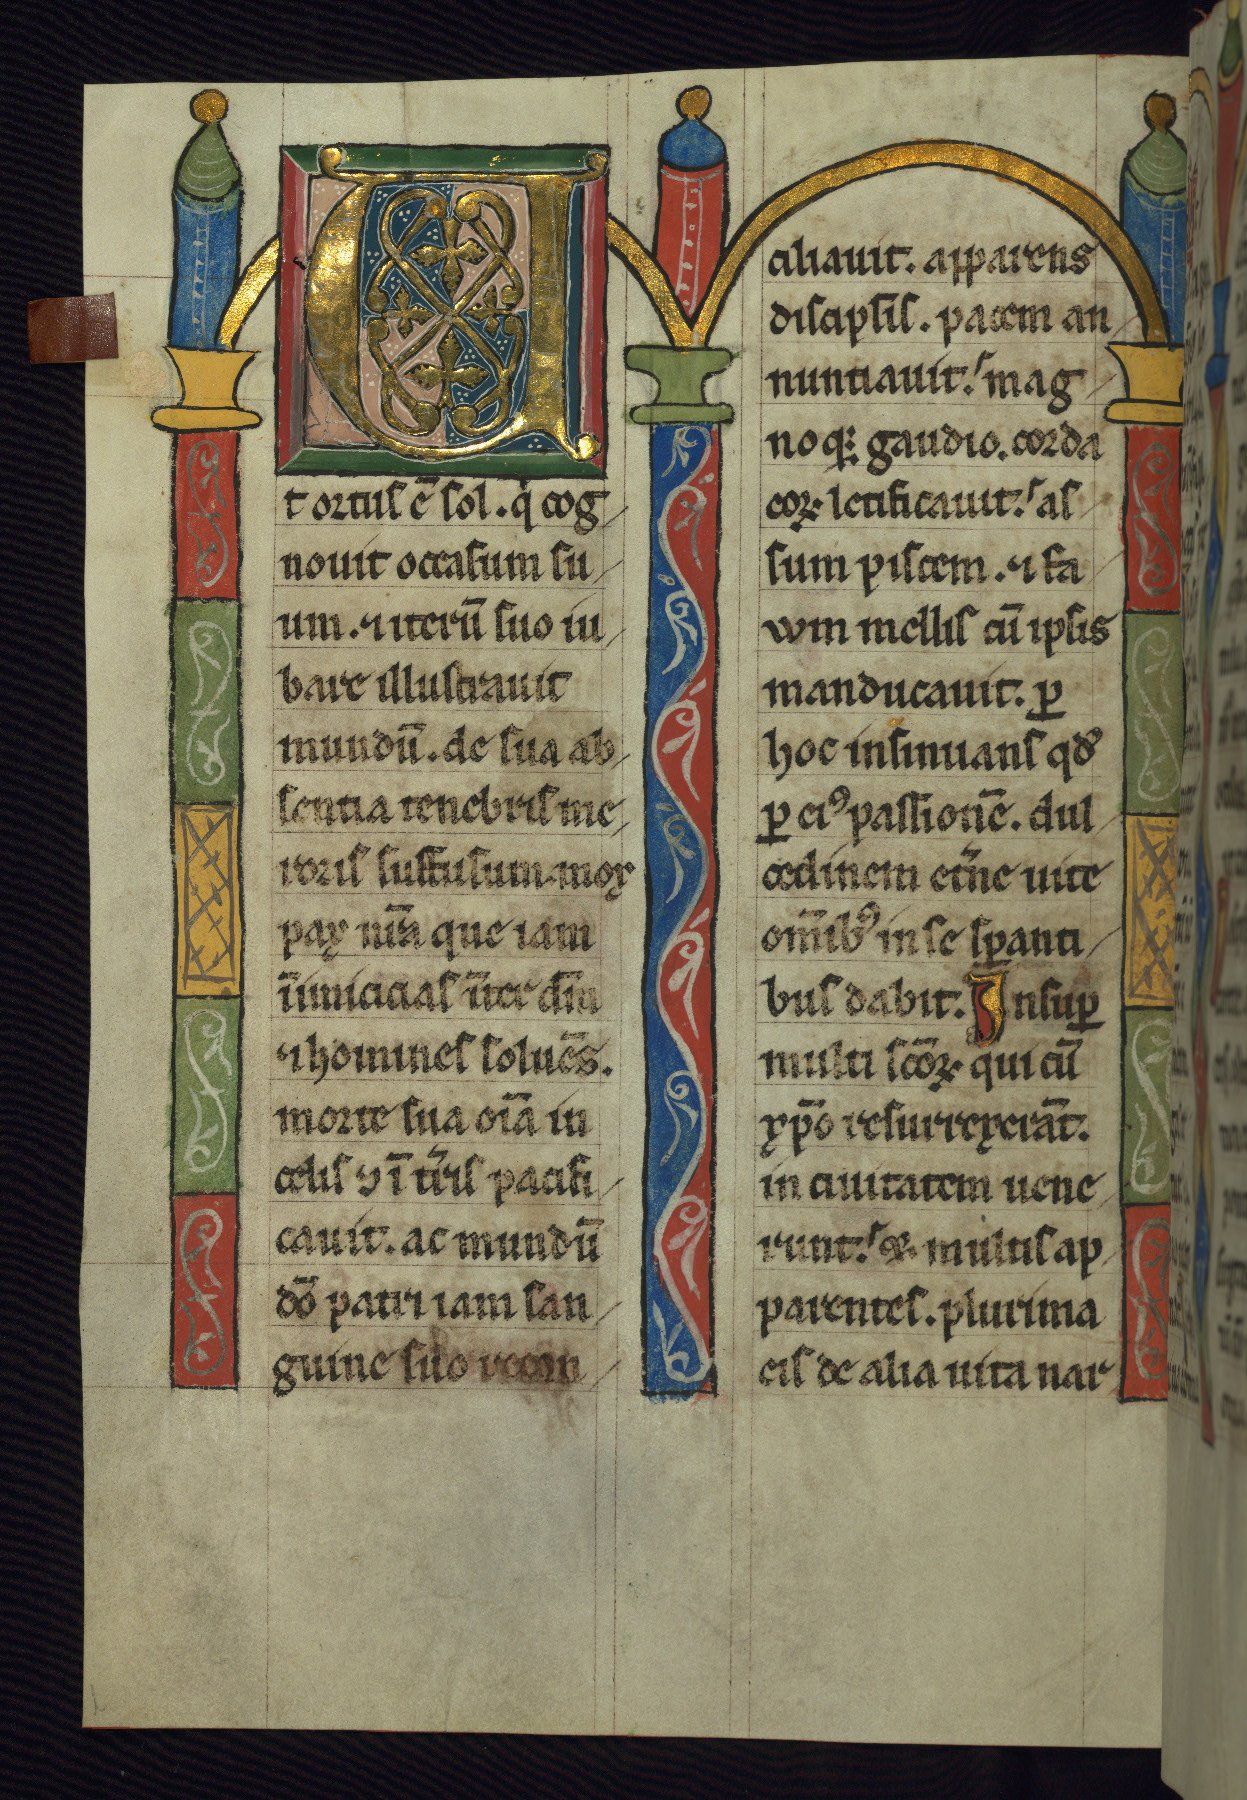 U
t ortus ē sol. q̇ cog
nouit occasum su
um. ⁊ iterū suo iu
bare illustrauit
mundū. de sua ab
sentia tenebris me
roris suffusum. mox
pax nr̄a que iam
inimicicias int̄ dm̄
⁊ homines soluēs.
morte sua oīa in
celis ⁊ ī tr̄is pacifi
cauit. ac mundū
dō patri iam san
guine suo recon
ciliauit. apparens
discipˡis. pacem an
nuntiauit. mag
noq; gaudio. corda
eoꝝ letificauit. as
sum piscem. ⁊ fa
uum mellis cū ipsis
manducauit. ꝑ
hoc insinuans qđ
ꝑ eiꝰ passionē. dul
cedinem et̄ne uite
om̄ibꝰ in se sꝑanti
bus dabit. Insuꝑ
multi sc̄oꝝ qui cū
xp̄o resurrexerāt.
in ciuitatem uene
runt. ⁊ multis ap
parentes. plurima
eis de alia uita nar